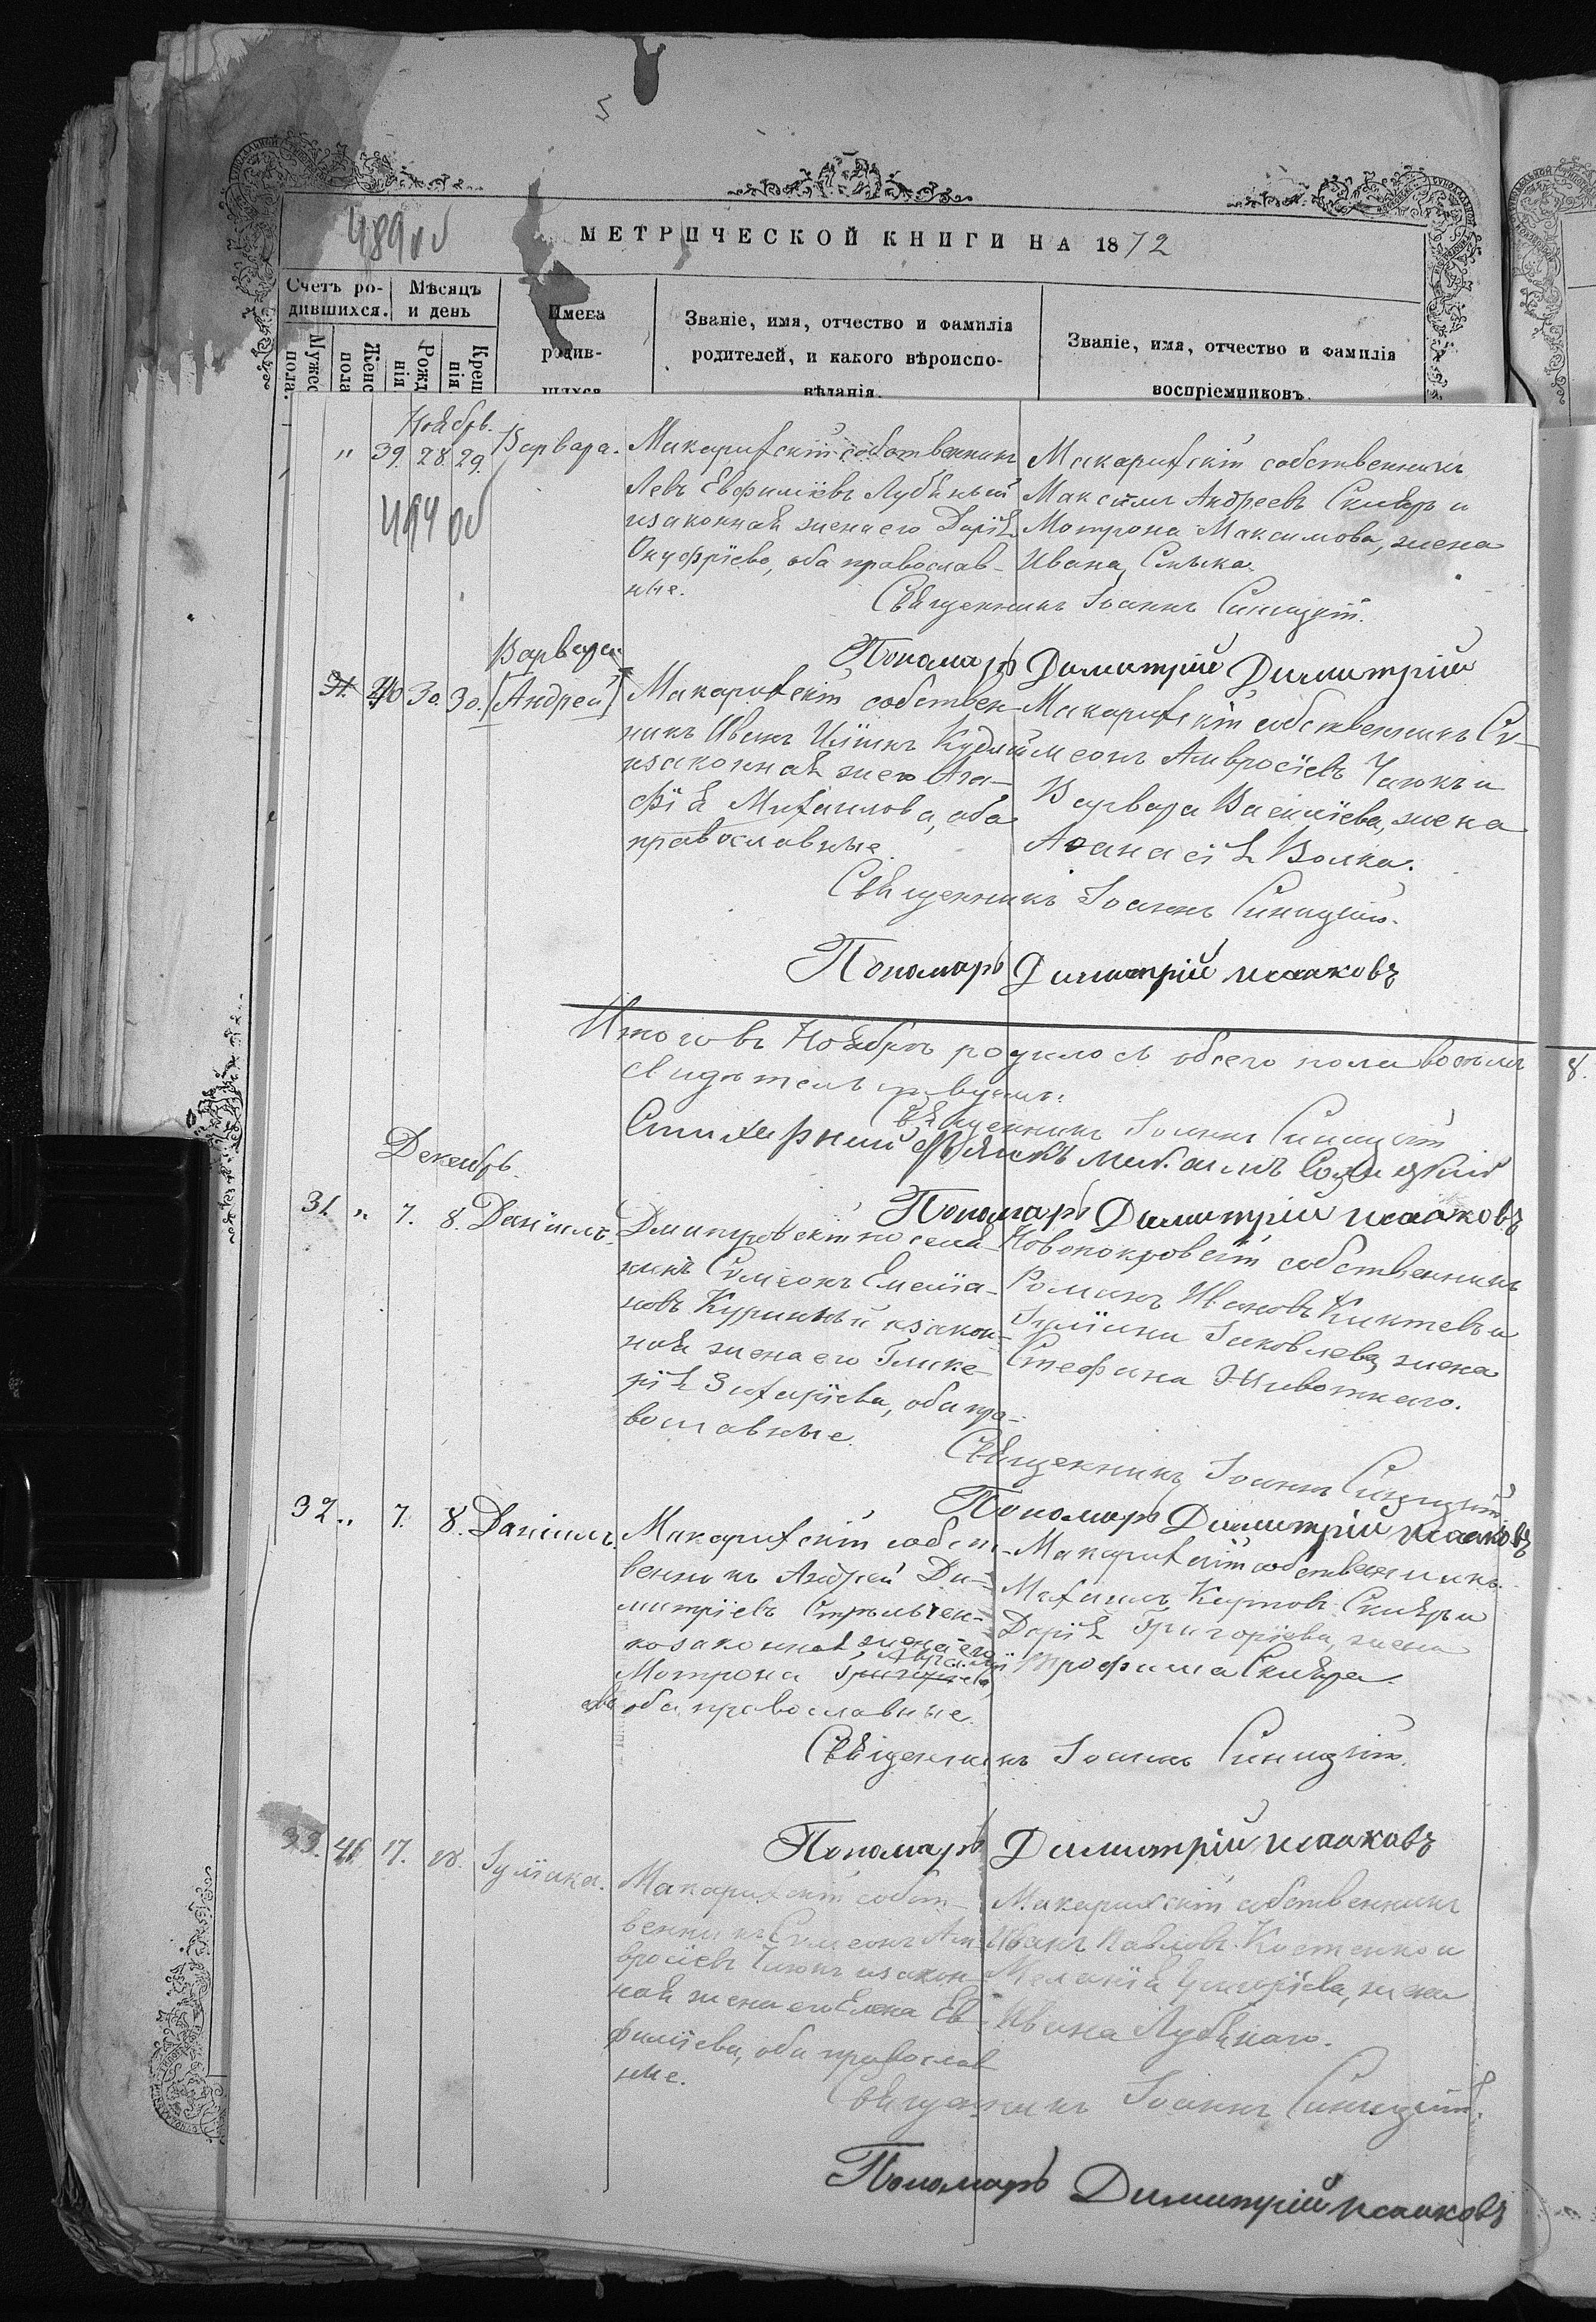 489 об
МЕТРИЧЕСКОЙ КНИГИ НА 1872
Счетъ ро-
дившихся.
Мѣсяцъ
и день
Имена
родив-
шихся
Званіе, имя, отчество и фамилія
родителей, и какого вѣроиспо-
вѣданія.
Званіе, имя, отчество и фамилія
воспріемниковъ.
Мужес
пола.
Женс
пола
Рожд
нія
Крещ
нія
Ноябрь.
" 39. 28. 29. Варвара.
494 об
Макарихскій собственникъ
Левъ Евфиміевъ Лубяный
и законная жена его Дарія
Онуфріева, оба православ-
ные.
Макарихскій собственникъ
Максимъ Андреевъ Скляръ и
Матрона Максимова, жена
Ивана
Священникъ Іоаннъ Синицкій.
Пономарь Димитрій Димитрій
Варвара
31. 40 30. 30. [Андрей]
Макарихскій собствен-
никъ Иванъ Иліинъ
и законная же его Ага-
фія Михаилова, оба
православные.
Макарихскій собственникъ Си-
меонъ Амвросіевъ Чижъ и
Варвара Василіева, жена
Аѳанасія Волка.
Священникъ Іоаннъ Синицкій.
Пономарь Димитрій Исааковъ
Итого въ Ноябрѣ родилось обоего пола восемь
Свидѣтельствуемъ:
Священникъ Іоаннъ Синицкій
Стихарный Дьячокъ Михаилъ
Пономарь Димитрій Исааковъ
Декабрь.
31. " 7. 8. Даніилъ.
Дмитровскій поселя-
никъ Симеонъ Емеліа-
новъ Куринный и закон-
ная жена его Глике-
рія Захаріева, оба пра-
вославные.
Новопокровскій собственникъ
Романъ Ивановъ Киктевъ и
Іуліана Іаковлева, жена
Стефана Животкаго.
Священникъ Іоаннъ Синицкій.
Пономарь Димитрій Исааковъ
32. " 7. 8. Даніилъ.
Макарихскій собст-
венникъ Андрей Ди-
митріевъ Стрѣльчен-
ко законная жена его
Матрона Григоріева,
оба православные.
Макарихскій собственникъ
Михаилъ Карповъ Скляръ и
Дарія Григоріева, жена
Трофима Скляра.
Священникъ Іоаннъ Синицкій.
Пономарь Димитрій Исааковъ
33. 41. 17. 18. Іуліана.
Макарихскій собст-
венникъ Симеонъ Ам-
вросіевъ Чижъ и закон-
ная жена его Елена Ев-
фиміева, оба православ
ные.
Макарихскій собственникъ
Иванъ Павловъ Костенко и
Меланія Григоріева, жена
Ивана Лубянаго.
Священникъ Іоаннъ Синицкій.
Пономарь Димитрій Исааковъ
8.